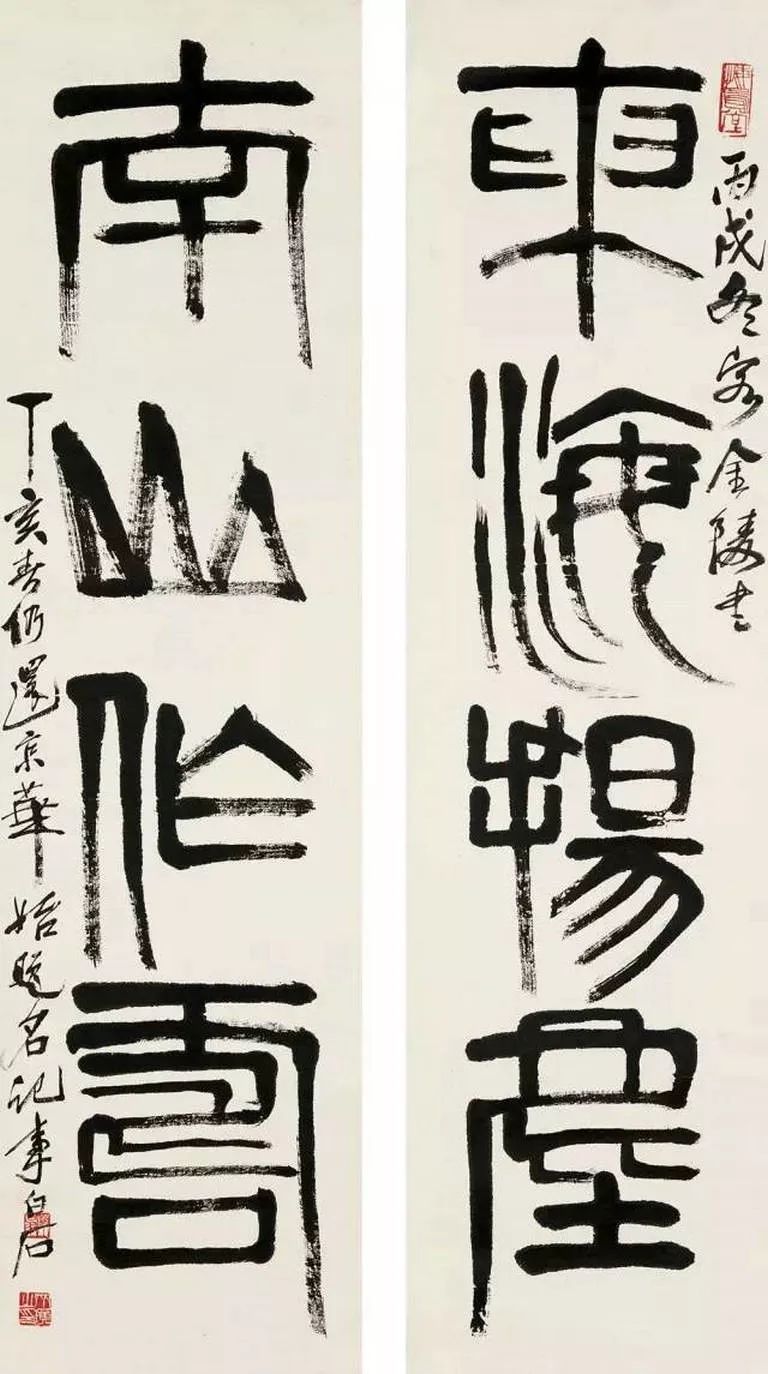 東海揚塵
丙戌冬客金陵書
南山作壽
丁亥春仍還京華始題名記事白石
悔烏堂